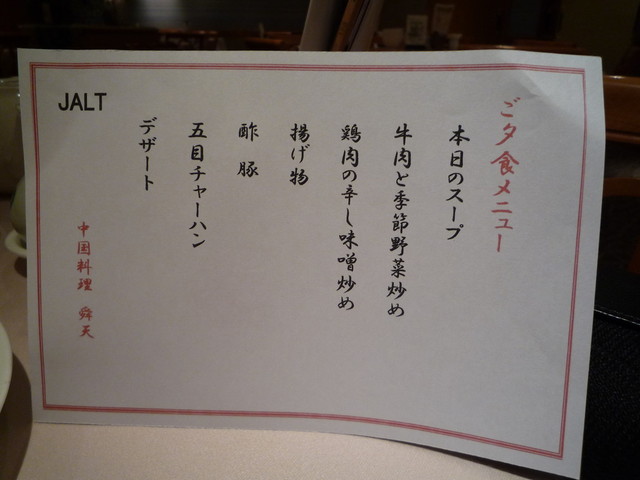 ご夕食メニュー
本日のスープ
牛肉と季節野菜炒め
鶏肉の辛し味噌炒め
揚げ物
酢豚
五目チャーハン
デザート
JALT
中国料理 舜天